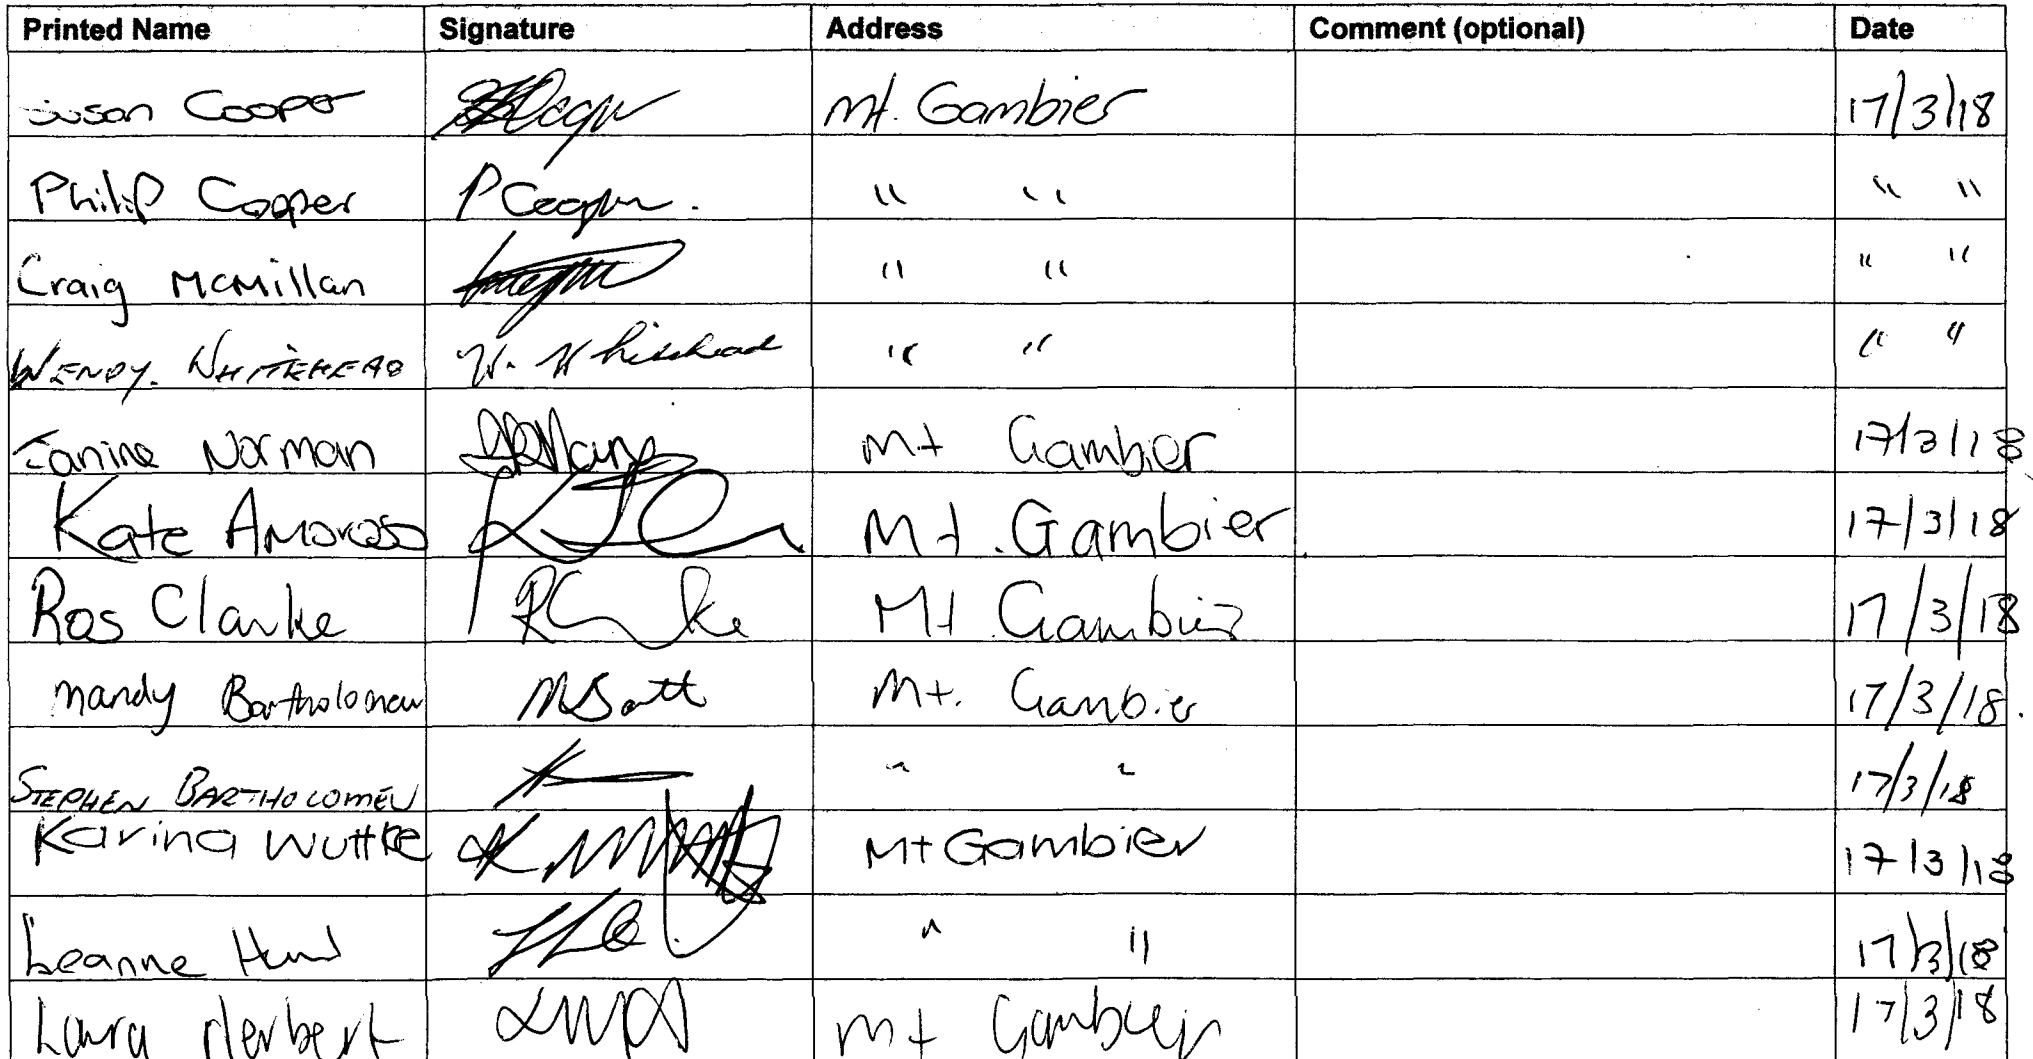 Printed Name Signature Address Comment (optional) Date
Susan Cooper Mt. Gambier 17/3/18
Philip Cooper P Cooper. " " " "
Craig McMillan " " " "
WENDY. WHITEHEAD W. Whitehead " " " "
Janine Norman Mt Gambier 17/3/18
Kate Amoroso Mt. Gambier 17/3/18
Ros Clarke Mt Gambier 17/3/18
Mandy Bartholomew MBartt Mt. Gambier 17/3/18.
STEPHEN BARTHOLOMEW " " 17/3/18
Karina Wuttke Mt Gambier 17/3/18
Leanne " " 17/3/18
Laura Herbert Mt Gambier 17/3/18